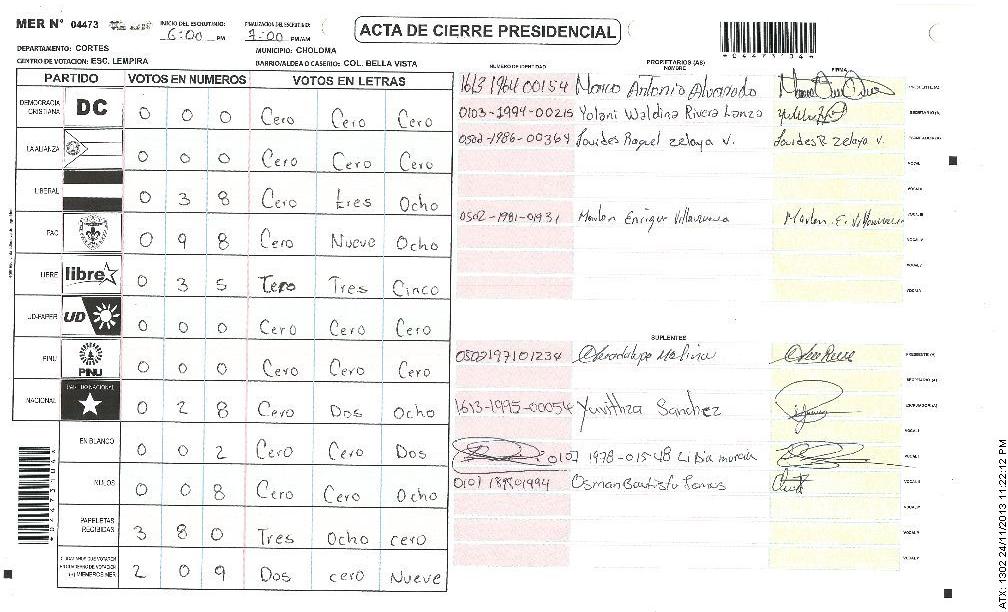 MER N° 04473
INICIO DEL ESCRUTINIO: 6:00 PM
FINALIZACION DEL ESCRUTINIO: 7:00 PM/AM
ACTA DE CIERRE PRESIDENCIAL
*04473104*
DEPARTAMENTO: CORTES
MUNICIPIO: CHOLOMA
CENTRO DE VOTACION: ESC. LEMPIRA
BARRIO/ALDEA O CASERIO: COL. BELLA VISTA
PARTIDO VOTOS EN NUMEROS VOTOS EN LETRAS
DEMOCRACIA CRISTIANA DC 0 0 0 Cero Cero Cero
LA ALIANZA 0 0 0 Cero Cero Cero
LIBERAL 0 3 8 Cero tres Ocho
PAC 0 9 8 Cero Nueve Ocho
LIBRE libre 0 3 5 Tero Tres Cinco
UD-FAPER UD 0 0 0 Cero Cero Cero
PINU PINU 0 0 0 Cero Cero Cero
NACIONAL PARTIDO NACIONAL 0 2 8 Cero Dos Ocho
EN BLANCO 0 0 2 Cero Cero Dos
NULOS 0 0 8 Cero Cero Ocho
PAPELETAS RECIBIDAS 3 8 0 Tres Ocho cero
CIUDADANOS QUE VOTARON
EN CUADERNO DE VOTACION
(+) MIEMBROS MER 2 0 9 Dos cero Nueve
NUMERO DE IDENTIDAD
PROPIETARIOS (AS)
NOMBRE
FIRMA
1613 1964 00154 Marco Antonio Alvarado PRESIDENTE (A)
0103-1994-00215 Yolani Waldina Rivera Lanza SECRETARIO (A)
0502-1986-00364 Lourdes Raquel Zelaya V. Lourdes R Zelaya V. ESCRUTADOR (A)
VOCAL I
VOCAL II
0502-1981-01931 Marlon Enrique Villanueva Marlon E. Villanueva VOCAL III
VOCAL IV
VOCAL V
VOCAL VI
SUPLENTES
0502197101234 Guadalupe Molina PRESIDENTE (A)
SECRETARIO (A)
1613-1995-00054 Yuvithza Sanchez ESCRUTADOR (A)
VOCAL I
0107 1978-01548 Libia murcia VOCAL II
0107 Osman Bautista VOCAL III
VOCAL IV
VOCAL V
VOCAL VI
ATX: 1302 24/11/2013 11:22:12 PM